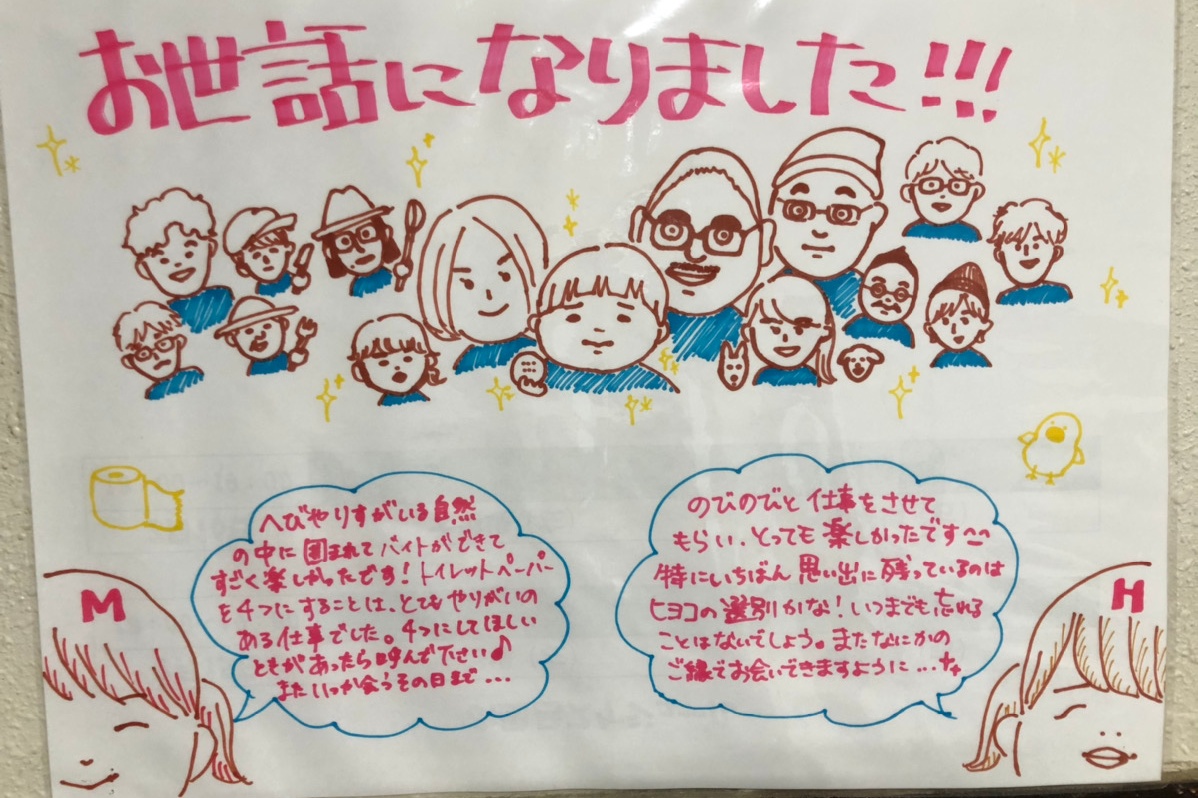 お世話になりました!!!
へびやりすがいる自然
の中に囲まれてバイトができて
すごく楽しかったです!トイレットペーパー
を4つにすることは、とてもやりがいの
ある仕事でした。4つにしてほしい
ときがあったら呼んで下さい♪
またいつか会うその日まで...
M
のびのびと仕事をさせて
もらい、とっても楽しかったです
特にいちばん思い出に残っているのは
ヒヨコの選別かな!いつまでも忘れる
ことはないでしょう。またなにかの
ご縁でお会いできますように...
H